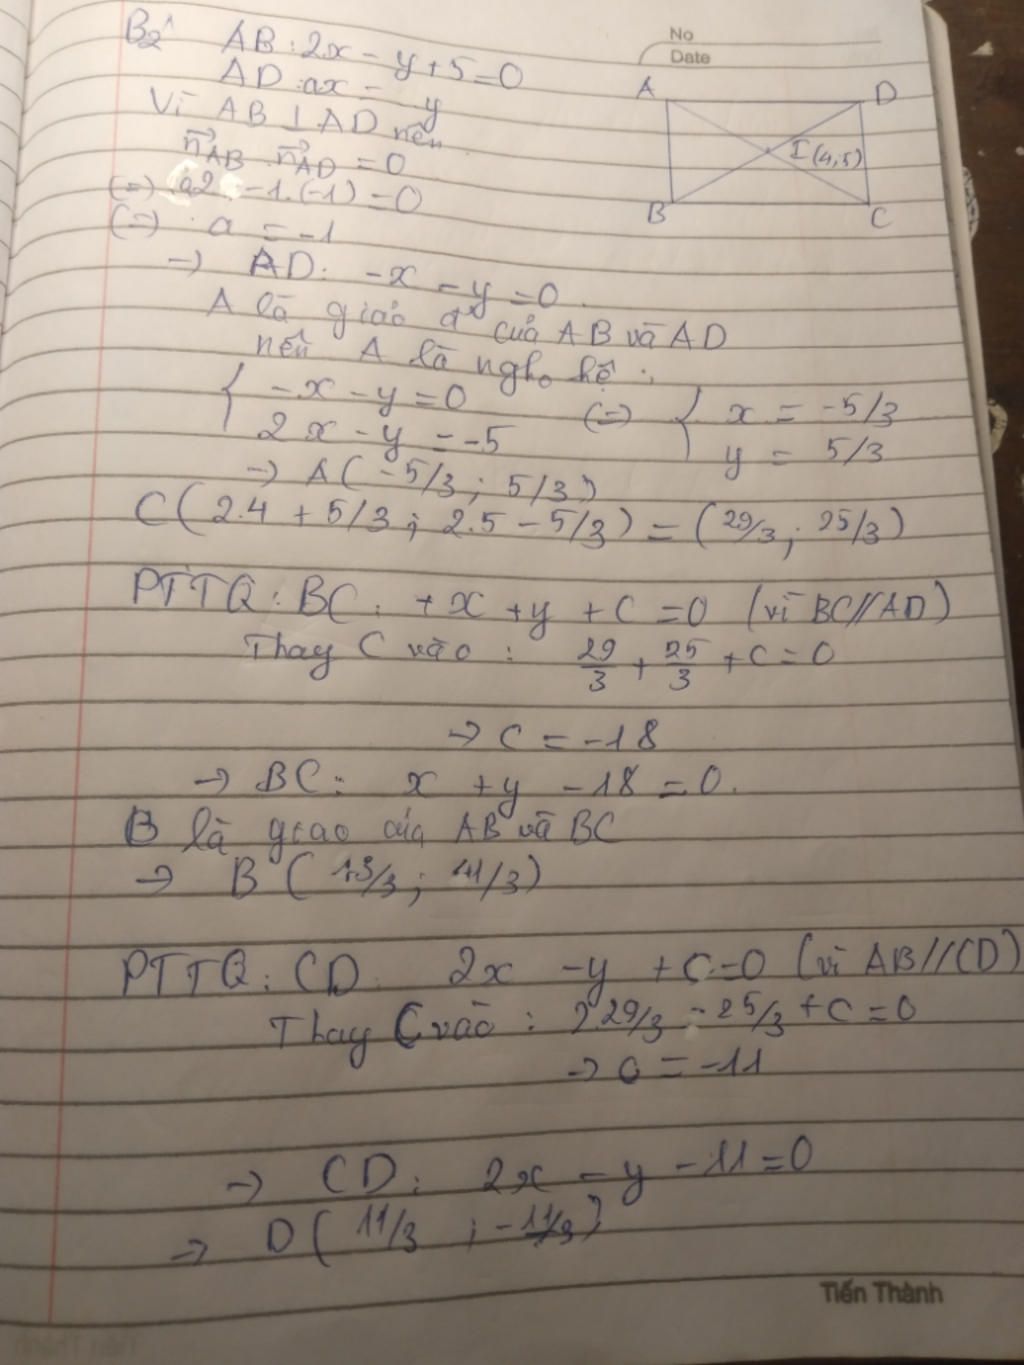 No
Date
B2
AB: 2x - y + 5 = 0
AD: ax - y
Vì AB ⊥ AD nên
n⃗AB . n⃗AD = 0
(=) a2 -1.(-1) = 0
(=) a = -1
→ AD: -x - y = 0.
A là giao đ² của AB và AD
nên A là ngh₀ hệ:
{ -x - y = 0 (=) { x = -5/3
2x - y = -5 y = 5/3
→ A(-5/3; 5/3)
C(2.4 + 5/3; 2.5 - 5/3) = (29/3; 25/3)
PTTQ: BC: +x + y + C = 0 (vì BC//AD)
Thay C vào: 29/3 + 25/3 + C = 0
→ C = -18
→ BC: x + y - 18 = 0.
B là giao của AB và BC
→ B(13/3; 41/3)
PTTQ: CD: 2x - y + C = 0 (vì AB//CD)
Thay C vào: 2.29/3 - 25/3 + C = 0
→ C = -11
→ CD: 2x - y - 11 = 0
→ D(11/3; -11/3)
A
D
I(4,5)
B
C
Tiến Thành